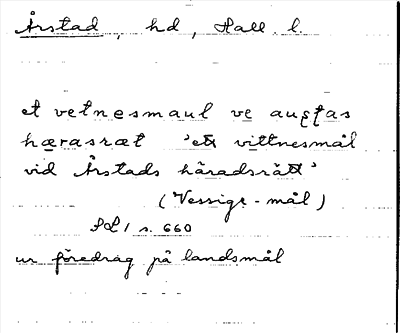 Årstad, hd, Hall. l.
et vetnesmaul ve
hærasræt 'ett vittnesmål
vid Årstads häradsrätt'
(Vessige-mål)
SL 1 s. 660
ur föredrag på landsmål